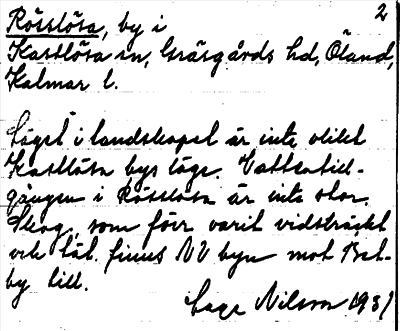 2
Rösslösa, by i
Kastlösa sn, Gräsgårds hd, Öland,
Kalmar l.
Läget i landskapet är inte olikt
Kastlösa bys läge. Vattentill-
gången i Rösslösa är inte stor.
Skog, som förr varit vidsträckt
och tät finns NV byn mot Bet-
by till.
Åage Nilsson 1931